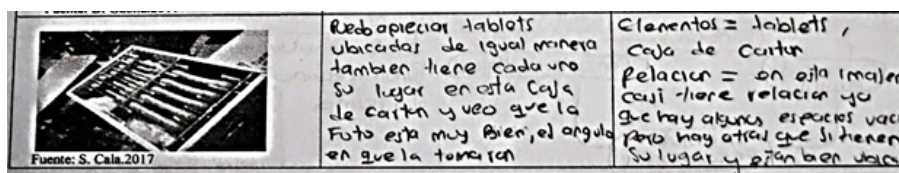 Fuente: S. Cala.2017
Redo apreciar tablets
ubicadas de igual manera
tambien tiene cada uno
su lugar en esta Caja
de carton y veo que la
Foto esta muy Bien, el angulo
en que la tomaron
Elementos = tablets,
caja de carton
Relacion = en esta imagen
casi tiene relacion ya
que hay algunos espacios vaci
pero hay otras que si tienen
su lugar y estan bien ubica